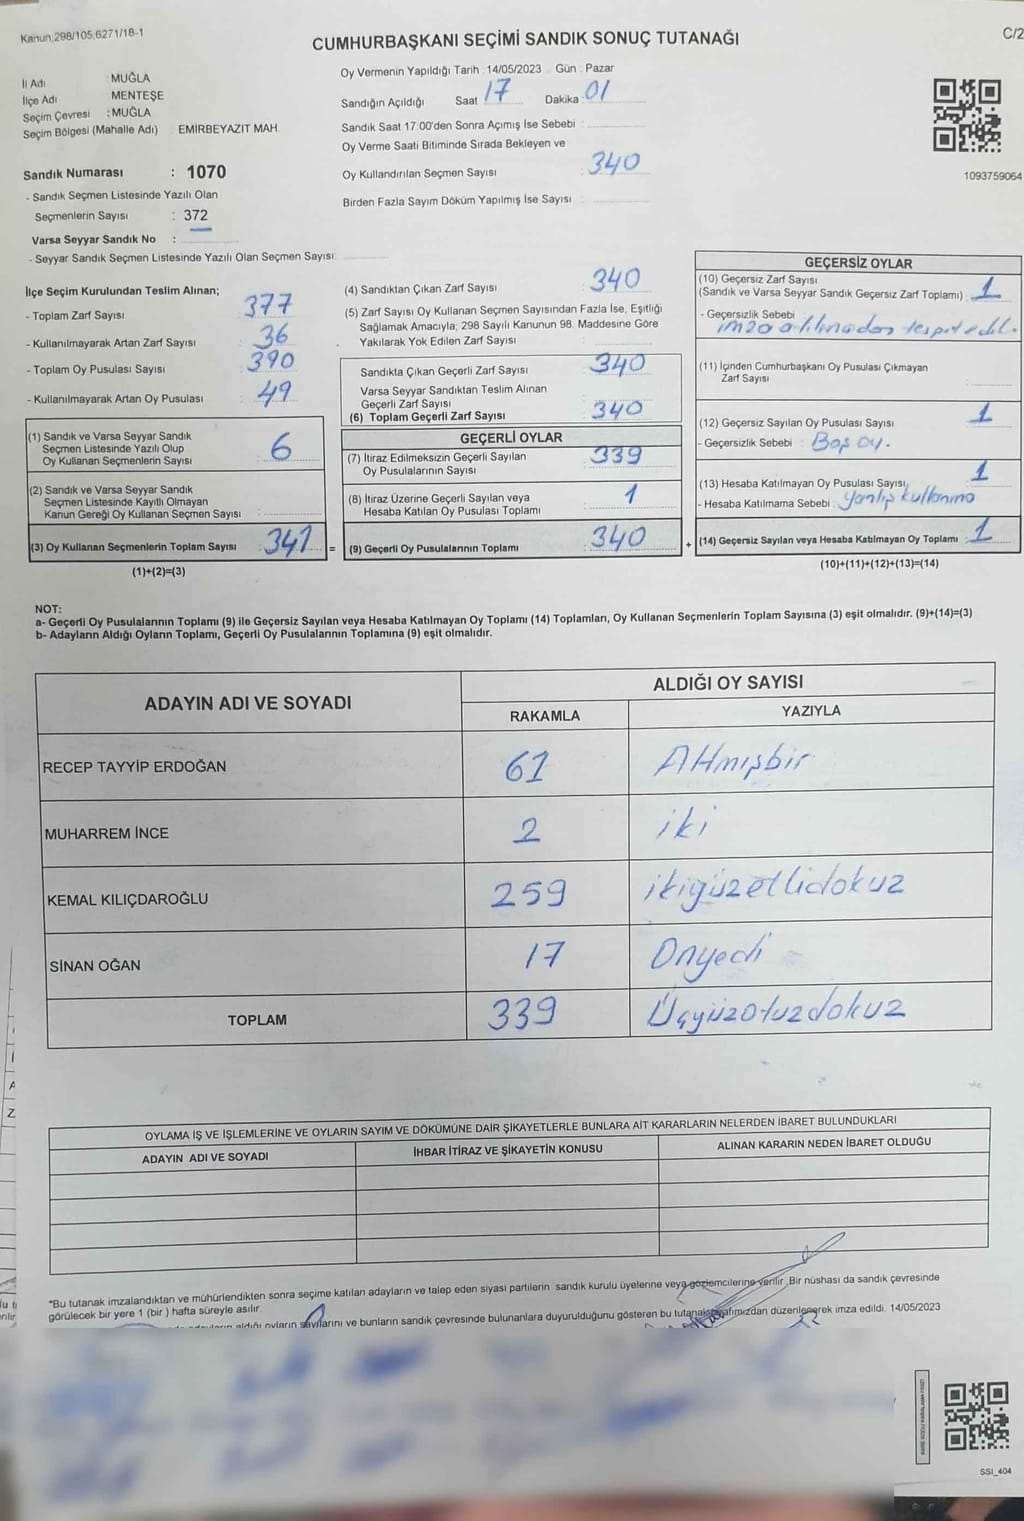 Kanun:298/105;6271/18-1
CUMHURBAŞKANI SEÇİMİ SANDIK SONUÇ TUTANAĞI
C/2
İl Adı : MUĞLA
İlçe Adı MENTEŞE
Seçim Çevresi : MUĞLA
Seçim Bölgesi (Mahalle Adı) : EMİRBEYAZIT MAH.
Sandık Numarası : 1070
- Sandık Seçmen Listesinde Yazılı Olan
Seçmenlerin Sayısı : 372
Varsa Seyyar Sandık No :
- Seyyar Sandık Seçmen Listesinde Yazılı Olan Seçmen Sayısı:
Oy Vermenin Yapıldığı Tarih : 14/05/2023 Gün : Pazar
Sandığın Açıldığı Saat 17 Dakika : 01
Sandık Saat 17.00'den Sonra Açımış İse Sebebi :
Oy Verme Saati Bitiminde Sırada Bekleyen ve
Oy Kullandırılan Seçmen Sayısı : 340
Birden Fazla Sayım Döküm Yapılmış İse Sayısı :
1093759064
İlçe Seçim Kurulundan Teslim Alınan;
- Toplam Zarf Sayısı : 377
- Kullanılmayarak Artan Zarf Sayısı : 36
- Toplam Oy Pusulası Sayısı : 390
- Kullanılmayarak Artan Oy Pusulası : 49
(1) Sandık ve Varsa Seyyar Sandık
Seçmen Listesinde Yazılı Olup
Oy Kullanan Seçmenlerin Sayısı : 6
(2) Sandık ve Varsa Seyyar Sandık
Seçmen Listesinde Kayıtlı Olmayan
Kanun Gereği Oy Kullanan Seçmen Sayısı :
(3) Oy Kullanan Seçmenlerin Toplam Sayısı : 341 =
(1)+(2)=(3)
(4) Sandıktan Çıkan Zarf Sayısı : 340
(5) Zarf Sayısı Oy Kullanan Seçmen Sayısından Fazla İse, Eşitliği
Sağlamak Amacıyla; 298 Sayılı Kanunun 98. Maddesine Göre
Yakılarak Yok Edilen Zarf Sayısı :
Sandıkta Çıkan Geçerli Zarf Sayısı : 340
Varsa Seyyar Sandıktan Teslim Alınan
Geçerli Zarf Sayısı :
(6) Toplam Geçerli Zarf Sayısı : 340
GEÇERLİ OYLAR
(7) İtiraz Edilmeksizin Geçerli Sayılan
Oy Pusulalarının Sayısı : 339
(8) İtiraz Üzerine Geçerli Sayılan veya
Hesaba Katılan Oy Pusulası Toplamı : 1
(9) Geçerli Oy Pusulalarının Toplamı : 340 +
GEÇERSİZ OYLAR
(10) Geçersiz Zarf Sayısı
(Sandık ve Varsa Seyyar Sandık Geçersiz Zarf Toplamı) : 1
- Geçersizlik Sebebi
: imza atılmadan tespit edil.
(11) İçinden Cumhurbaşkanı Oy Pusulası Çıkmayan
Zarf Sayısı :
(12) Geçersiz Sayılan Oy Pusulası Sayısı : 1
- Geçersizlik Sebebi : Boş oy.
(13) Hesaba Katılmayan Oy Pusulası Sayısı : 1
- Hesaba Katılmama Sebebi : yanlış kullanma
(14) Geçersiz Sayılan veya Hesaba Katılmayan Oy Toplamı : 1
(10)+(11)+(12)+(13)=(14)
NOT:
a- Geçerli Oy Pusulalarının Toplamı (9) ile Geçersiz Sayılan veya Hesaba Katılmayan Oy Toplamı (14) Toplamları, Oy Kullanan Seçmenlerin Toplam Sayısına (3) eşit olmalıdır. (9)+(14)=(3)
b- Adayların Aldığı Oyların Toplamı, Geçerli Oy Pusulalarının Toplamına (9) eşit olmalıdır.
ADAYIN ADI VE SOYADI ALDIĞI OY SAYISI
RAKAMLA YAZIYLA
RECEP TAYYİP ERDOĞAN 61 Altmışbir
MUHARREM İNCE 2 iki
KEMAL KILIÇDAROĞLU 259 ikiyüzellidokuz
SİNAN OĞAN 17 Onyedi
TOPLAM 339 Üçyüzotuzdokuz
OYLAMA İŞ VE İŞLEMLERİNE VE OYLARIN SAYIM VE DÖKÜMÜNE DAİR ŞİKAYETLERLE BUNLARA AİT KARARLARIN NELERDEN İBARET BULUNDUKLARI
ADAYIN ADI VE SOYADI İHBAR İTİRAZ VE ŞİKAYETİN KONUSU ALINAN KARARIN NEDEN İBARET OLDUĞU
*Bu tutanak imzalandıktan ve mühürlendikten sonra seçime katılan adayların ve talep eden siyasi partilerin sandık kurulu üyelerine veya gözlemcilerine verilir. Bir nüshası da sandık çevresinde
görülecek bir yere 1 (bir ) hafta süreyle asılır.
adayların aldığı oyların sayılarını ve bunların sandık çevresinde bulunanlara duyurulduğunu gösteren bu tutanak tarafımızdan düzenlenerek imza edildi. 14/05/2023
SSI_404